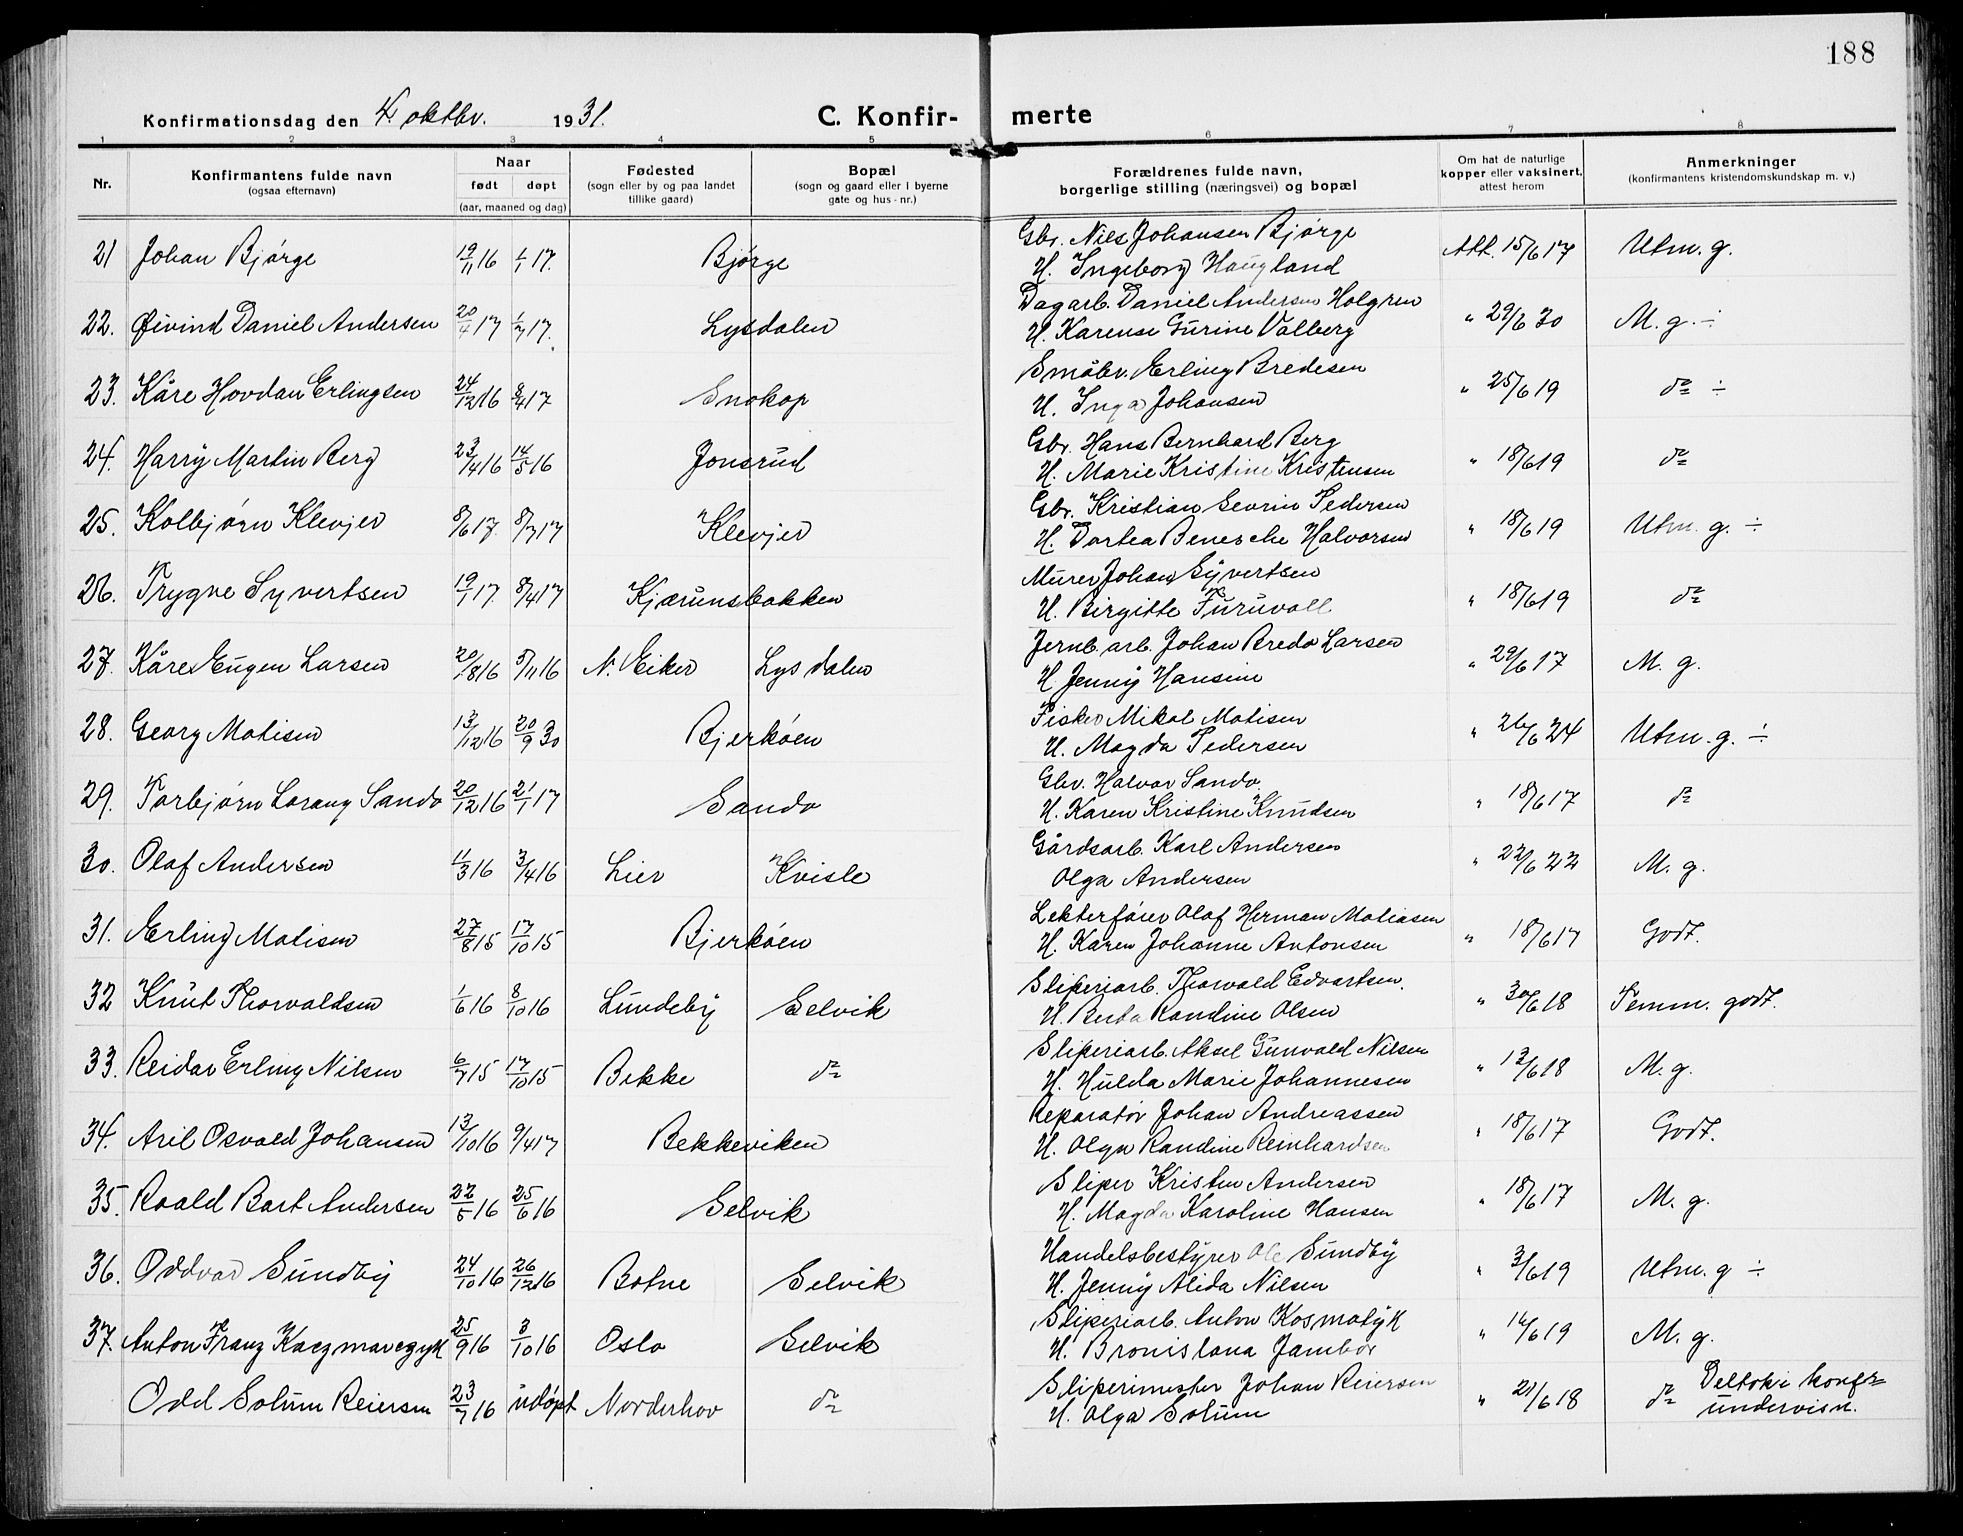 188
Konfirmationsdag den 4. oktbr. 1931.
C. Konfir- merte
1 2 3 4 5 6 7 8
Nr.
Konfirmantens fulde navn
(ogsaa efternavn)
Naar
født døpt
(aar, maaned og dag)
Fødested
(sogn eller by og paa landet
tillike gaard)
Bopæl
(sogn og gaard eller i byerne
gate og hus-nr.)
Forældrenes fulde navn,
borgerlige stilling (næringsvei) og bopæl
Om hat de naturlige
kopper eller vaksinert,
attest herom
Anmerkninger
(konfirmantens kristendomskundskap m. v.)
Gbr. Nils Johansen Bjørge
21 Johan Bjørge 19/11 16 1/1 17. Bjørge Att. 15/6 17 Utm. g.
H. Ingeborg Haugland
Dagarb. Daniel Andersen Holgren
22. Øivind Daniel Andersen 20/4 17 1/7 17. Lysdalen " 29/6 30 M. g. ÷
H. Karense Gurine Valberg
Småbr. Erling Bredesen
23. Kåre Hovdan Erlingsen 24/12 16 8/4 17 Snekop " 25/6 19 do ÷
H. Inga Johansen
Gbr. Hans Bernhard Berg
24. Harry Martin Berg 23/4 16 14/5 16 Jonsrud " 18/6 19 do
H. Marie Kristine Kristensen
Gbr. Kristian Sevrin Pedersen
25. Kolbjørn Klevjer 8/6 17. 8/7 17 Klevjer " 18/6 19 Utm. g. ÷
H. Dortea Benesche Halvorsen
Murer Johan Syvertsen
26. Trygve Syvertsen 19/1 17. 8/4 17 Kjærunsbakken " 18/6 19 do
H. Birgitte Furuvall
Jernb. arb. Johan Bredo Larsen
27. Kåre Eugen Larsen 20/8 16 5/11 16 N. Eiker Lysdalen " 29/6 17 M. g.
H. Jenny Hansine
Fisker Mikal Matisen
28. Georg Matisen 13/12 16 20/9 30 Bjerkøen " 26/6 24 Utm. g. ÷
H. Magda Pedersen
Gbr. Halvor Sando.
29. Torbjørn Lorang Sando 20/12 16 21/1 17 Sando " 18/6 17 do
H. Karen Kristine Knudsen
Gårdsarb. Karl Andersen
30. Olaf Andersen 11/3 16 3/4 16 Lier Kvisle " 22/6 22 M. g.
Olga Andersen
Lekterfører Olaf Herman Matiasen
31. Erling Matisen 27/8 15 17/10 15 Bjerkøen " 18/6 17 Godt.
H. Karen Johanne Antonsen
Sliperiarb. Thorvald Edvartsen.
32 Knut Thorvaldsen 1/6 16 8/10 16 Lundeby Selvik " 30/6 18 Temm. godt.
H. Berta Randine Olsen
Sliperiarb. Aksel Gunvald Nilsen
33. Reidar Erling Nilsen 6/7 15 17/10 15 Bekke do " 13/6 18 M. g.
H. Hulda Marie Johannesen
Reparatør Johan Andreassen
34. Aril Osvald Johansen 13/10 16 9/4 17 Bekkeviken " 18/6 17 Godt.
H. Olga Randine Reinhardsen
Sliper Kristen Andersen
35. Roald Bart Andersen 22/5 16 25/6 16 Selvik " 18/6 17 M. g.
H. Magda Karoline Hansen
Handelsbestyrer Ole Sundby
36. Oddvar Sundby 24/10 16 26/12 16 Botne Selvik " 3/6 19 Utm. g ÷
H. Jenny Alida Nilsen
Sliperiarb. Anton Kosmatyk
37. Anton Franz Kaczmarczyk 25/9 16 3/10 16 Oslo Selvik " 14/6 19 M. g.
H. Bronislana Jambor
Sliperimester Johan Reiersen
Odd Solum Reiersen 23/7 16 udøpt Norderhov do " 21/6 18 do Deltok i konfr-
H. Olga Solum undervisn.